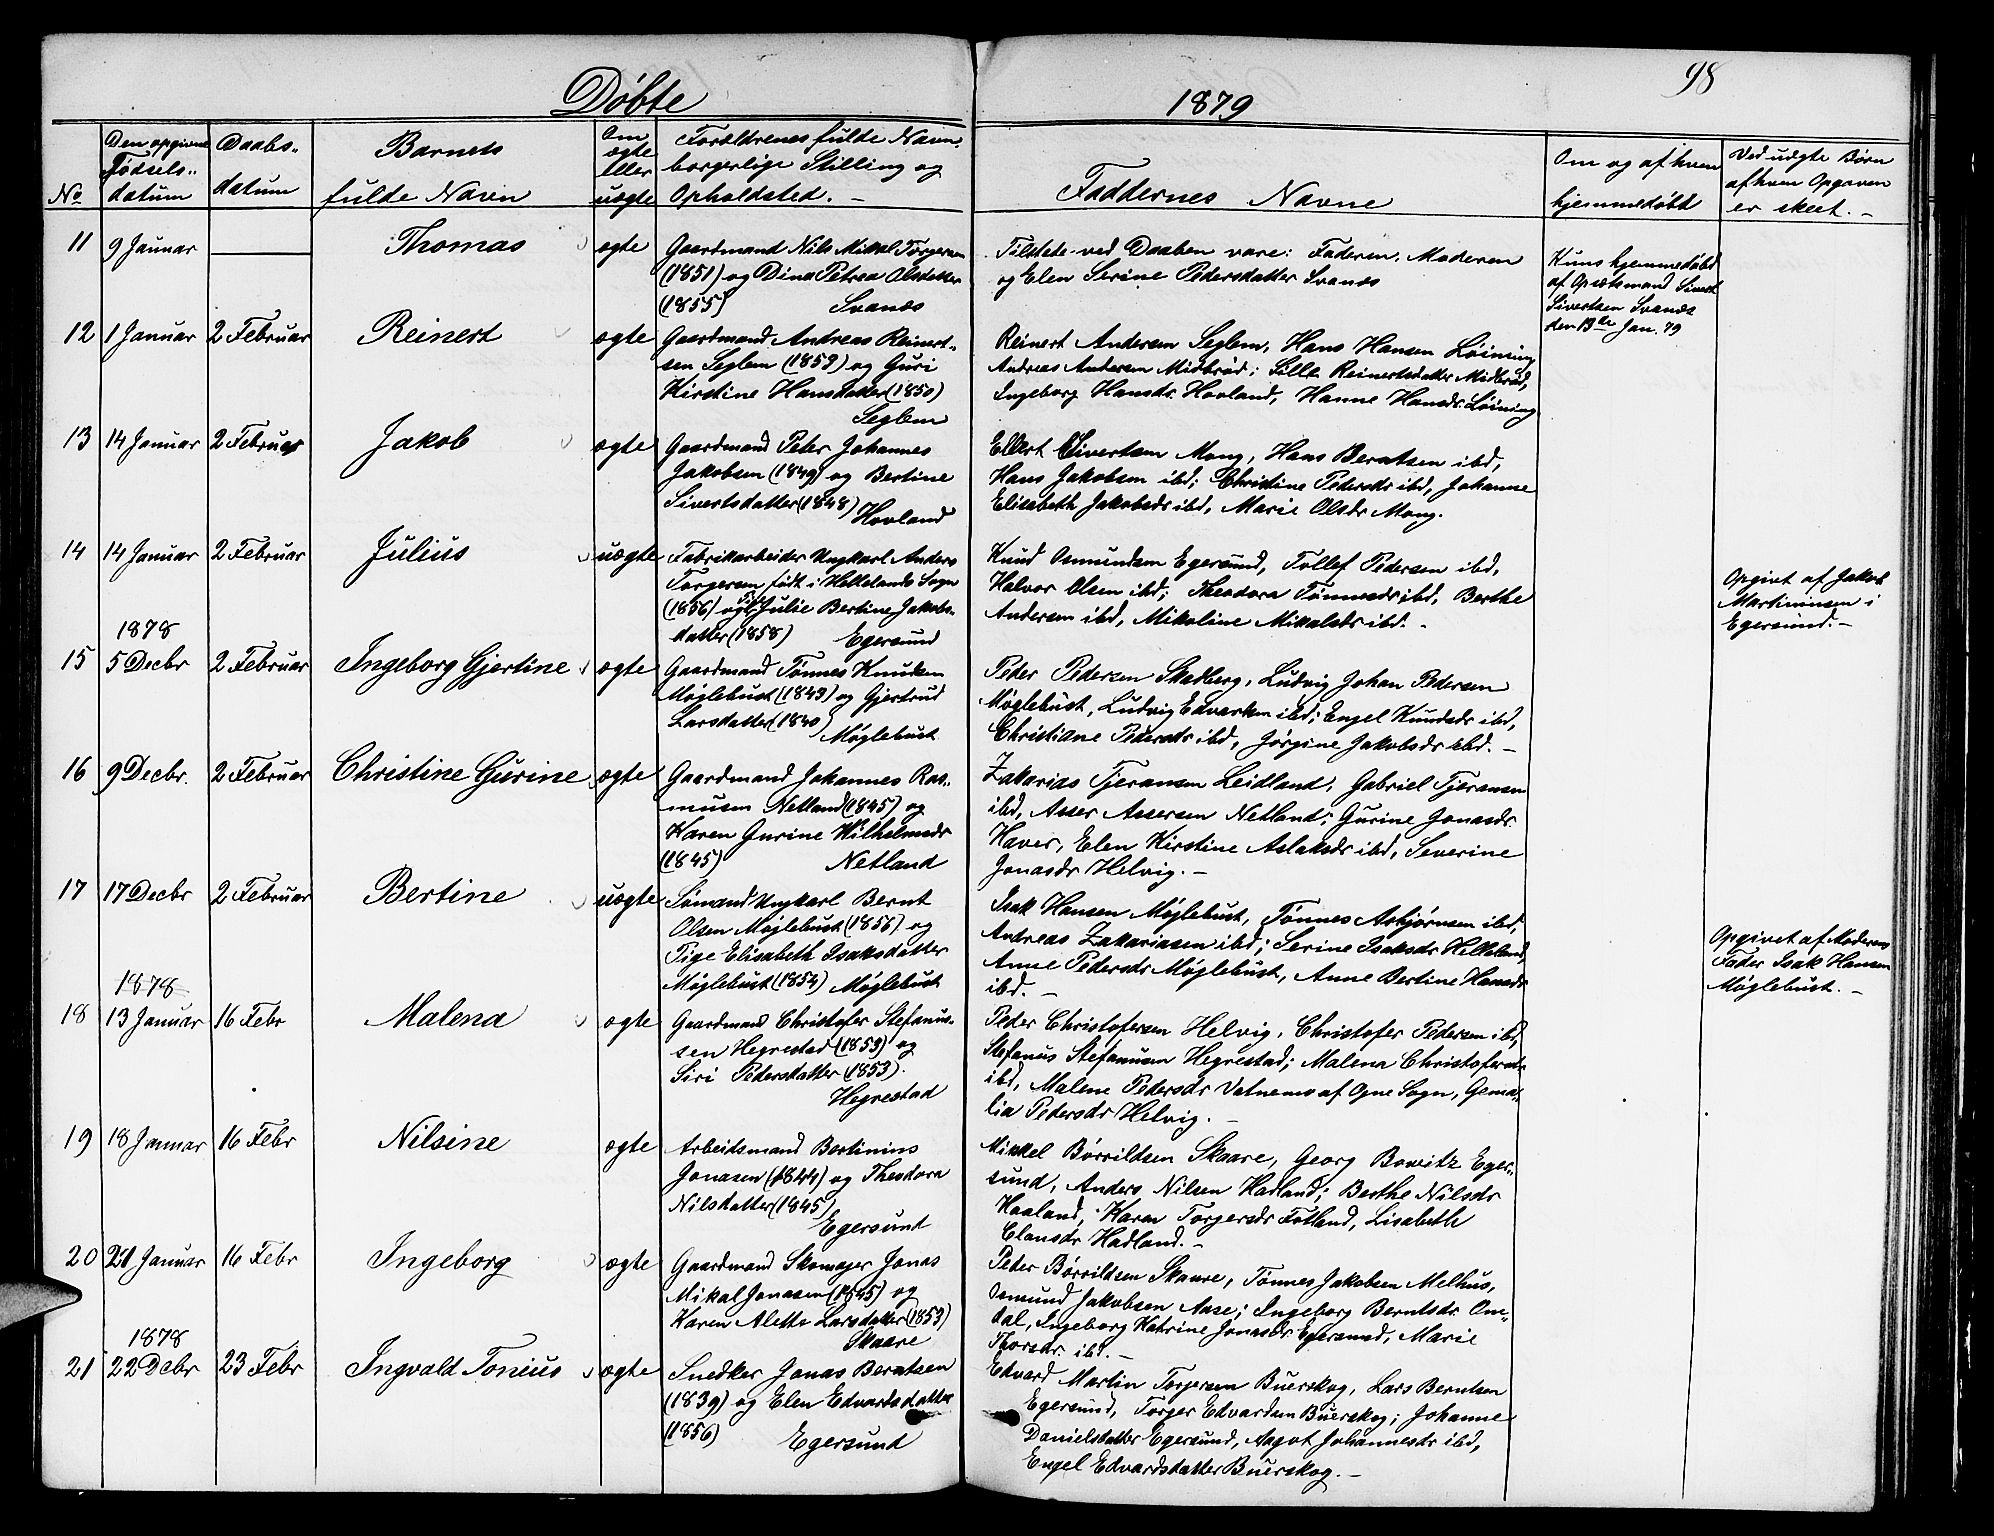 98
Døbte 1879
No
Den opgivne Fødsels-datum
Daabs-datum
Barnets fulde Navn
Om ægte eller uægte
Forældrenes fulde Navn, borgerlige Stilling og Opholdsted. -
Faddernes Navne
Om og af hvem hjemmedøbt
Ved uægte Børn af hvem Opgaven er skeet. -
11 9 Januar Thomas ægte
Gaardmand Nils Mikal Torgersen
(1851) og Dina Petrea Olsdatter
(1855) Svanæs
Tilstede ved Daaben vare: Faderen, Moderen
og Elen Serine Pedersdatter Svanæs
Kuns hjemmedøbt
af Opsætsmand Sivert
Sivertsen Svanæs
den 13de Jan. 79
12 1 Januar 2 Februar Reinert ægte
Gaardmand Andreas Reinert-
sen Seglem (1853) og Guri
Kirstine Hansdatter (1850)
Seglem
Reinert Andersen Seglem, Hans Hansen Løining
Andreas Andersen Midbrød; Sille Reinertsdatter Midbrød,
Ingeborg Hansdr Hovland, Hanne Hansdr Løining
13 14 Januar 2 Februar Jakob ægte
Gaardmand Peter Johannes
Jakobsen (1849) og Bertine
Sivertsdatter (1848)
Hovland
Ellert Sivertsen Mong, Hans Berntsen ibd,
Hans Jakobsen ibd; Christine Pedersdr ibd, Johanne
Elisabeth Jakobsdr ibd, Marie Olsdr Mong.
14 14 Januar 2 Februar Julius uægte
Fabrikarbeider Ungkarl Anders
Torgersen født i Hellelands Sogn
(1856) og Pige Julie Bertine Jakobs-
datter (1858) Egersund
Knud Osmundsen Egersund, Tollef Pedersen ibd,
Halvor Olsen ibd; Theodora Tønnesdr ibd, Berthe
Andersen ibd, Mikoline Mikalsdr ibd. -
Opgivt af Jakob
Martiniusen i
Egersund. -
1878
15 5 Decbr 2 Februar Ingeborg Gjertine ægte
Gaardmand Tønnes Knudsen
Møglebust (1843) og Gjertrud
Larsdatter (1840)
Møglebust
Peder Pedersen Skadberg, Ludvig Johan Pedersen
Møglebust, Ludvig Edvardsen ibd; Engel Knudsdr ibd,
Christiane Pedersdr ibd, Jørgine Jakobsdr ibd. -
16 9 Decbr. 2 Februar Christine Gurine ægte
Gaardmand Johannes Ras-
musen Netland (1845) og
Karen Gurine Wilhelmsdr
(1845) Netland
Zakarias Tjeransen Leidland, Gabriel Tjeransen
ibd, Asser Assersen Netland; Gurine Jonasdr
Haver, Elen Kirstine Aslaksdr ibd, Severine
Jonasdr Helvig. -
17 17 Decbr 2 Februar Bertine uægte
Sømand Ungkarl Bernt
Olsen Møglebust (1856) og
Pige Elisabeth Isaksdatter
Møglebust (1854) Møglebust
Isak Hansen Møglebust, Tønnes Asbjørnsen ibd,
Andreas Zakariasen ibd; Serine Isaksdr Helleland,
Anne Pedersdr Møglebust, Anne Bertine Hansdr
ibd. -
Opgivet af Moderens
Fader Isak Hansen
Møglebust. -
1878
18 13 Januar 16 Febr Malena ægte
Gaardmand Christofer Stefanus-
sen Hegrestad (1853) og
Siri Pedersdatter (1853).
Hegrestad
Peder Christofersen Helvig, Christofer Pedersen ibd,
Stefanus Stefanusen Hegrestad; Malena Christofersdr
ibd, Malene Pedersdr Vatnemo af Ogne Sogn, Gema-
lia Pedersdr Helvig. -
19 18 Januar 16 Febr Nilsine ægte
Arbeidsmand Bertinius
Jonasen (1844) og Theodora
Nilsdatter (1845)
Egersund
Mikkel Børrildsen Skaare, Georg Bowitz Eger-
sund, Anders Nilsen Hadland; Berthe Nilsdr
Haaland, Karen Torgersdr Fotland, Lisabeth
Clausdr Hadland. -
20 21 Januar 16 Febr Ingeborg ægte
Gaardmand Skomager Jonas
Mikal Jonasen (1845) og
Karen Alette Larsdatter (1853)
Skaare
Peder Børrildsen Skaare, Tønnes Jakobsen Melhus,
Osmund Jakobsen Aase; Ingeborg Berntsdr Om-
dal, Ingeborg Katrine Jonasdr Egersund, Marie
Thorsdr. ibd. -
1878
21 22 Decbr 23 Febr Ingvald Tonius ægte
Snedker Jonas Berntsen
(1839) og Elen Edvardsdatter
(1856) Egersund
Edvard Martin Torgersen Buerskog, Lars Berntsen
Egersund, Torger Edvardsen Buerskog; Johanne
Danielsdatter Egersund, Aagot Johannesdr ibd,
Engel Edvardsdatter Buerskog. -